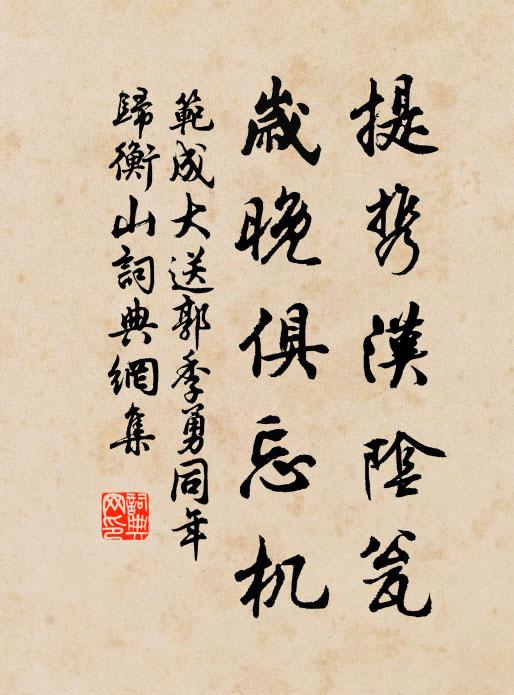 提携漢陰瓮
歲晚俱忘机
範成大送郭季勇同年
歸衡山詞典網集
詞典网印